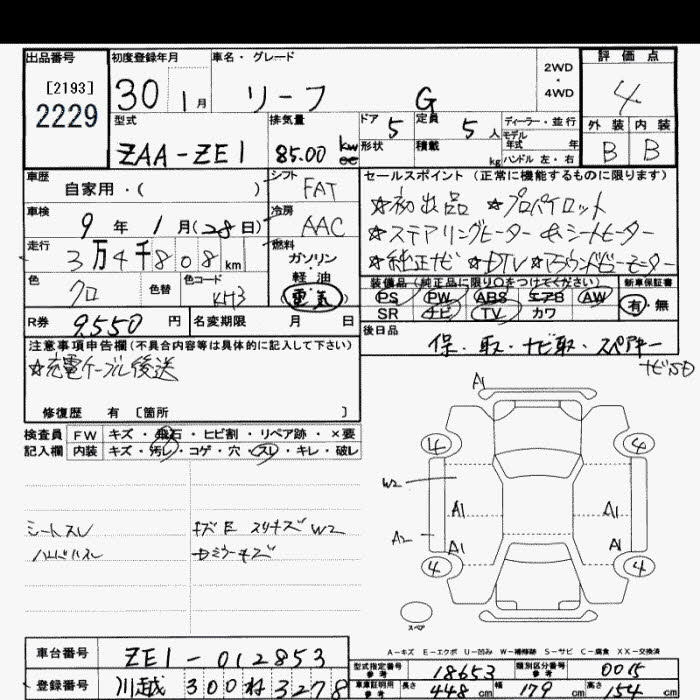 出品番号 初度登録年月 車名・グレード 2WD・4WD 評価点
[2193]
2229
30 1月 リーフ G 4
型式 排気量 ドア 5 定員 5 人 ディーラー・並行 外装 内装
モデル年式 年
ZAA-ZE1 85.00 kw cc 形状 積載 kg ハンドル 左・右 B B
車歴 自家用・( ) シフト FAT セールスポイント (正常に機能するものに限ります)
車検 9年 1月(28日) 冷房 AAC ☆初出品 ☆プロパイロット
☆ステアリングヒーター ☆シートヒーター
走行 3万4千808km 燃料 ガソリン・軽油 (電気) ☆純正ナビ ☆DTV ☆アラウンドビューモーター
色 クロ 色替 色コード KH3 装備品 (純正品に限り○をつけてください) 新車保証書
PS PW ABS エアB AW 有・無
SR ナビ TV カワ
R券 9550円 名変期限 月 日 後日品 保・取・ナビ取・スペアキー
ナビSD
注意事項申告欄(不具合内容等は具体的に記入して下さい)
☆充電ケーブル後送
修復歴 有 [箇所 ]
検査員 FW キズ・飛石・ヒビ割・リペア跡・×要
記入欄 内装 キズ・汚レ・コゲ・穴・スレ・キレ・破レ
A1
4 4
W2 A1 A1
A2 A1 A1
4 4
スペア
シートスレ キズE スリキズ W2
ハンドルスレ ナミラーキズ
A-キズ E-エクボ U-凹み W-補修跡 S-サビ C-腐食 XX-交換済
車台番号 ZE1-012853 型式指定番号 参考 18653 類別区分番号 参考 0015
登録番号 川越 300 ね 3278 車庫証明用 参考 長さ 448cm 幅 179cm 高さ 154cm